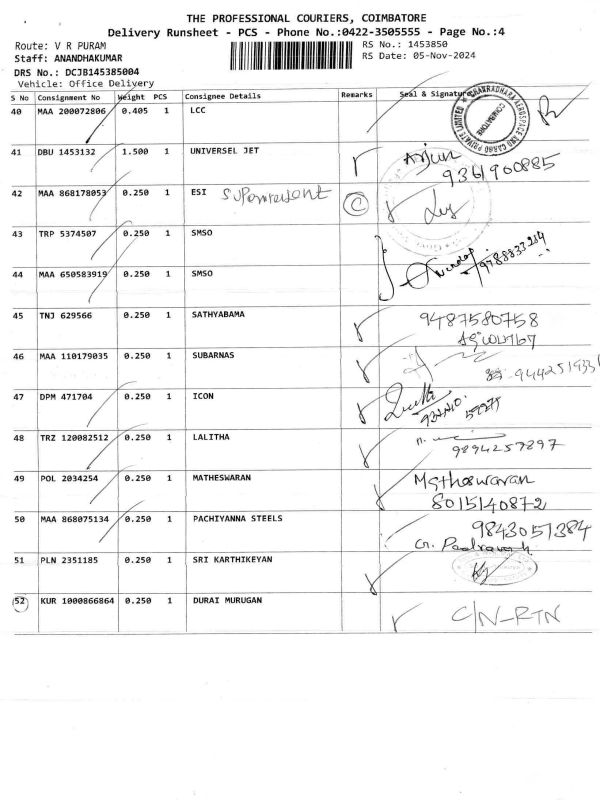 THE PROFESSIONAL COURIERS, COIMBATORE
Delivery Runsheet - PCS - Phone No.:0422-3505555 - Page No.:4
Route: V R PURAM RS No.: 1453850
Staff: ANANDHAKUMAR RS Date: 05-Nov-2024
DRS No.: DCJB145385004
Vehicle: Office Delivery
S No Consignment No Weight PCS Consignee Details Remarks Seal & Signature
40 MAA 200072806 0.405 1 LCC
COIMBATORE
41 DBU 1453132 1.500 1 UNIVERSEL JET Arjun
9361900885
42 MAA 868178053 0.250 1 ESI C
43 TRP 5374507 0.250 1 SMSO
9788833284
44 MAA 650583919 0.250 1 SMSO
45 TNJ 629566 0.250 1 SATHYABAMA 9487580758
46 MAA 110179035 0.250 1 SUBARNAS
47 DPM 471704 0.250 1 ICON
48 TRZ 120082512 0.250 1 LALITHA
9894257897
49 POL 2034254 0.250 1 MATHESWARAN Matheswaran
8015140872
50 MAA 868075134 0.250 1 PACHIYANNA STEELS 9843051384
51 PLN 2351185 0.250 1 SRI KARTHIKEYAN
52 KUR 1000866864 0.250 1 DURAI MURUGAN C/N-RTN